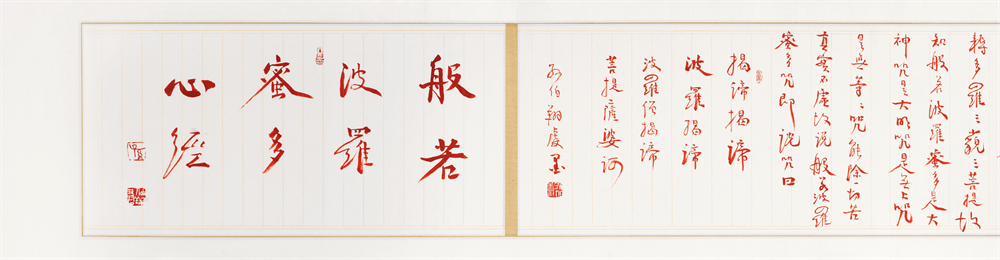 耨多羅三藐三菩提故
知般若波羅蜜多是大
神咒是大明咒是无上咒
是無等〻咒能除一切苦
真實不虛故説般若波羅
蜜多咒即説咒曰
揭諦揭諦
波羅揭諦
波羅僧揭諦
菩提薩婆訶
孙伯翔虔墨
般若
波羅
蜜多
心經